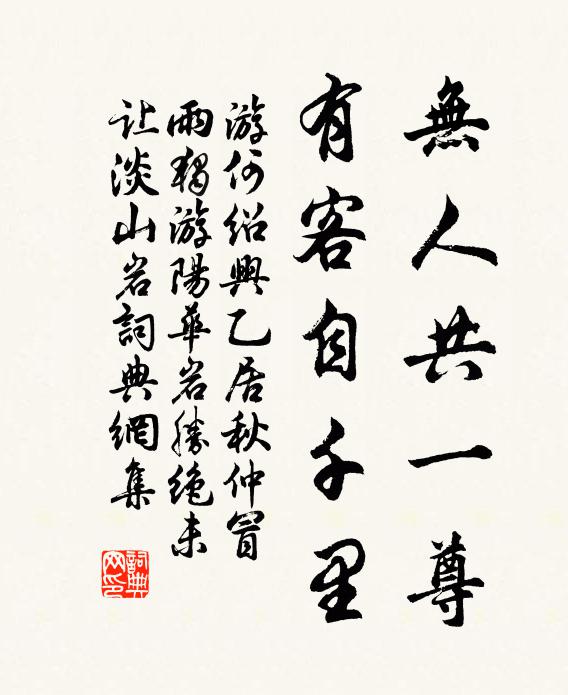 無人共一尊
有客自千里
游何绍興乙居秋仲冒
雨獨游陽華岩勝绝未
让淡山岩詞典網集
詞典网印